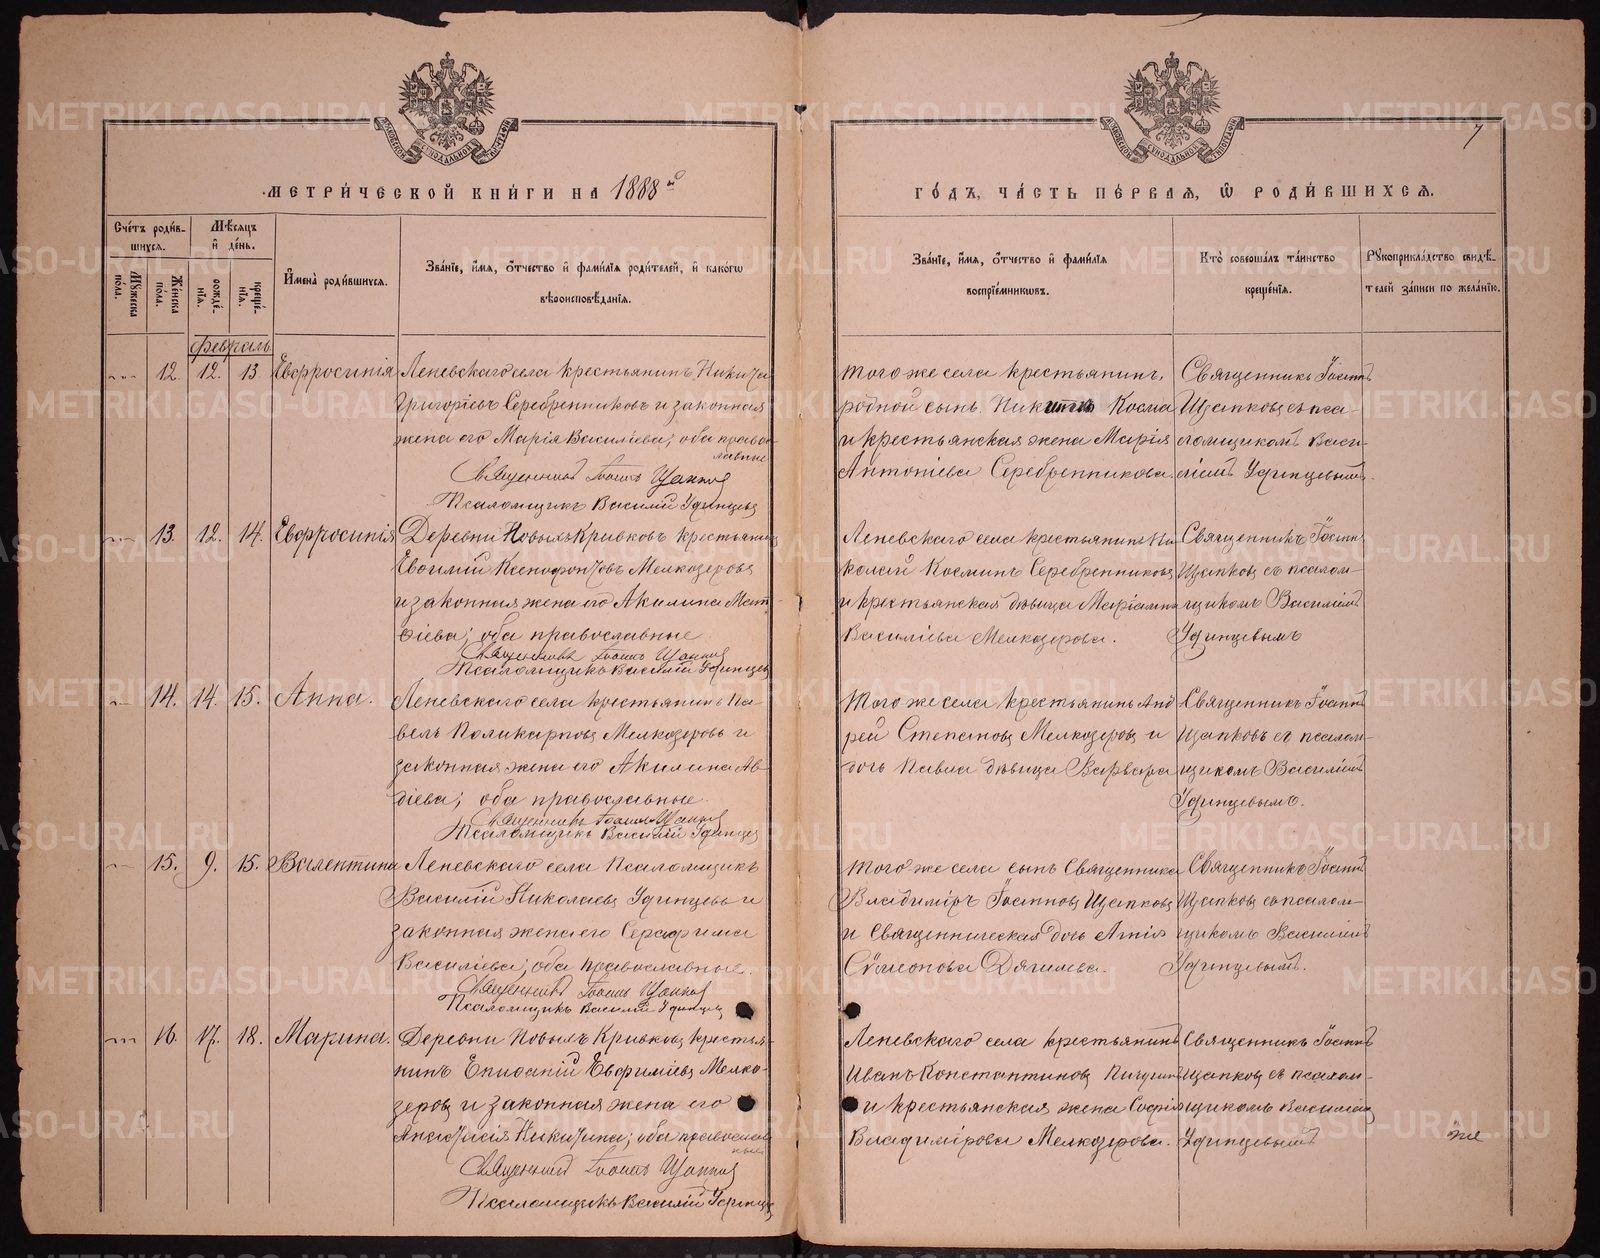 7
МЕТРИ́ЧЕСКОЙ КНИ́ГИ НА 1888й
ГО́ДЪ, ЧА́СТЬ ПЕ́РВАЯ, Ѽ РОДИ́ВШИХСЯ.
Сче́тъ роди́в-
шихся.
Мѣ́сяцъ
и҆ де́нь.
Му́жеска по́ла.
Же́нска по́ла.
рожде́-
нїя.
креще́-
нїя.
И҆мена̀ роди́вшихся.
Зва́нїе, и҆́мя, ѻ҆́тчество и҆ фами́лїя роди́телей, и҆ како́гѡ
вѣроисповѣ́данїя.
Зва́нїе, и҆́мя, ѻ҆́тчество и҆ фами́лїя
воспрїе́мникѡвъ.
Кто̀ соверша́лъ та́инство
креще́нїя.
Рꙋкоприкла́дство свидѣ́-
телей за́писи по жела́нїю.
Февраль
12. 12. 13. Евфросинія
Леневскаго села крестьянинъ Никита
Григоріевъ Серебренниковъ и законная
жена его Марія Василіева; оба право-
славные
Священникъ Іоаннъ Щапковъ
Псаломщикъ Василій Удинцевъ
Того же села крестьянинъ,
родной сынъ Никиты Косма
и крестьянская жена Марія
Антоніева Серебренникова.
Священникъ Іоаннъ
Щапковъ съ пса-
ломщикомъ Васи-
ліемъ Удинцевымъ.
13. 12. 14. Евфросинія
Деревни Новыхъ Кривковъ крестьянинъ
Евфимій Ксенофонтовъ Мелкозеровъ
и законная жена его Акилина Мат-
ѳіева; оба православные.
Священникъ Іоаннъ Щапковъ
Псаломщикъ Василій Удинцевъ
Леневскаго села крестьянинъ Ни-
колай Косминъ Серебренниковъ
и крестьянская дѣвица Маріамна
Василіева Мелкозерова.
Священникъ Іоаннъ
Щапковъ съ псалом-
щикомъ Василіемъ
Удинцевымъ
14. 14. 15. Анна.
Леневскаго села крестьянинъ Па-
велъ Поликарповъ Мелкозеровъ и
законная жена его Акилина Ав-
діева; оба православные.
Священникъ Іоаннъ Щапковъ
Псаломщикъ Василій Удинцевъ
Того же села крестьянинъ Анд-
рей Степановъ Мелкозеровъ и
дочь Павла дѣвица Варвара
Священникъ Іоаннъ
Щапковъ съ псалом-
щикомъ Василіемъ
Удинцевымъ.
15. 9. 15. Валентина
Леневскаго села Псаломщикъ
Василій Николаевъ Удинцевъ и
законная жена его Серафима
Василіева; оба православные.
Священникъ Іоаннъ Щапковъ
Псаломщикъ Василій Удинцевъ
Того же села сынъ Священника
Владиміръ Іоанновъ Щапковъ
и Священническая дочь
Сѵмеонова Дягилева.
Священникъ Іоаннъ
Щапковъ съ псалом-
щикомъ Василіемъ
Удинцевымъ.
16. 17. 18. Марина.
Деревни Новыхъ Кривковъ крестья-
нинъ Епифаній Евфиміевъ Мелко-
зеровъ и законная жена его
Анастасія Никитина; оба православ-
ные
Священникъ Іоаннъ Щапковъ
Псаломщикъ Василій Удинцевъ
Леневскаго села крестьянинъ
Иванъ Константиновъ
и крестьянская жена Софія
Владимірова Мелкозерова.
Священникъ Іоаннъ
Щапковъ съ псалом-
щикомъ Василіемъ
Удинцевымъ
METRIKI.GASO-URAL.RU